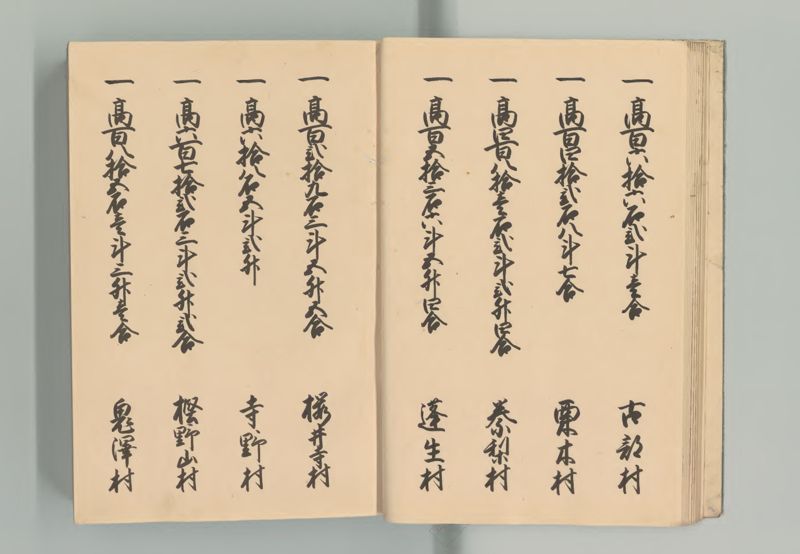 一 高百六拾六石弐斗壱合 古部村
一 高百四拾弐石八斗七合 栗木村
一 高四百八拾壱石弐斗弐升四合 秦梨村
一 高百五拾三石六斗五升四合 蓬生村
一 高百弐拾九石三斗五升五合 桜井寺村
一 高六拾八石五斗弐升 寺野村
一 高六百七拾弐石三斗弐升弐合 樫山村
一 高百八拾五石壱斗三升壱合 鬼澤村